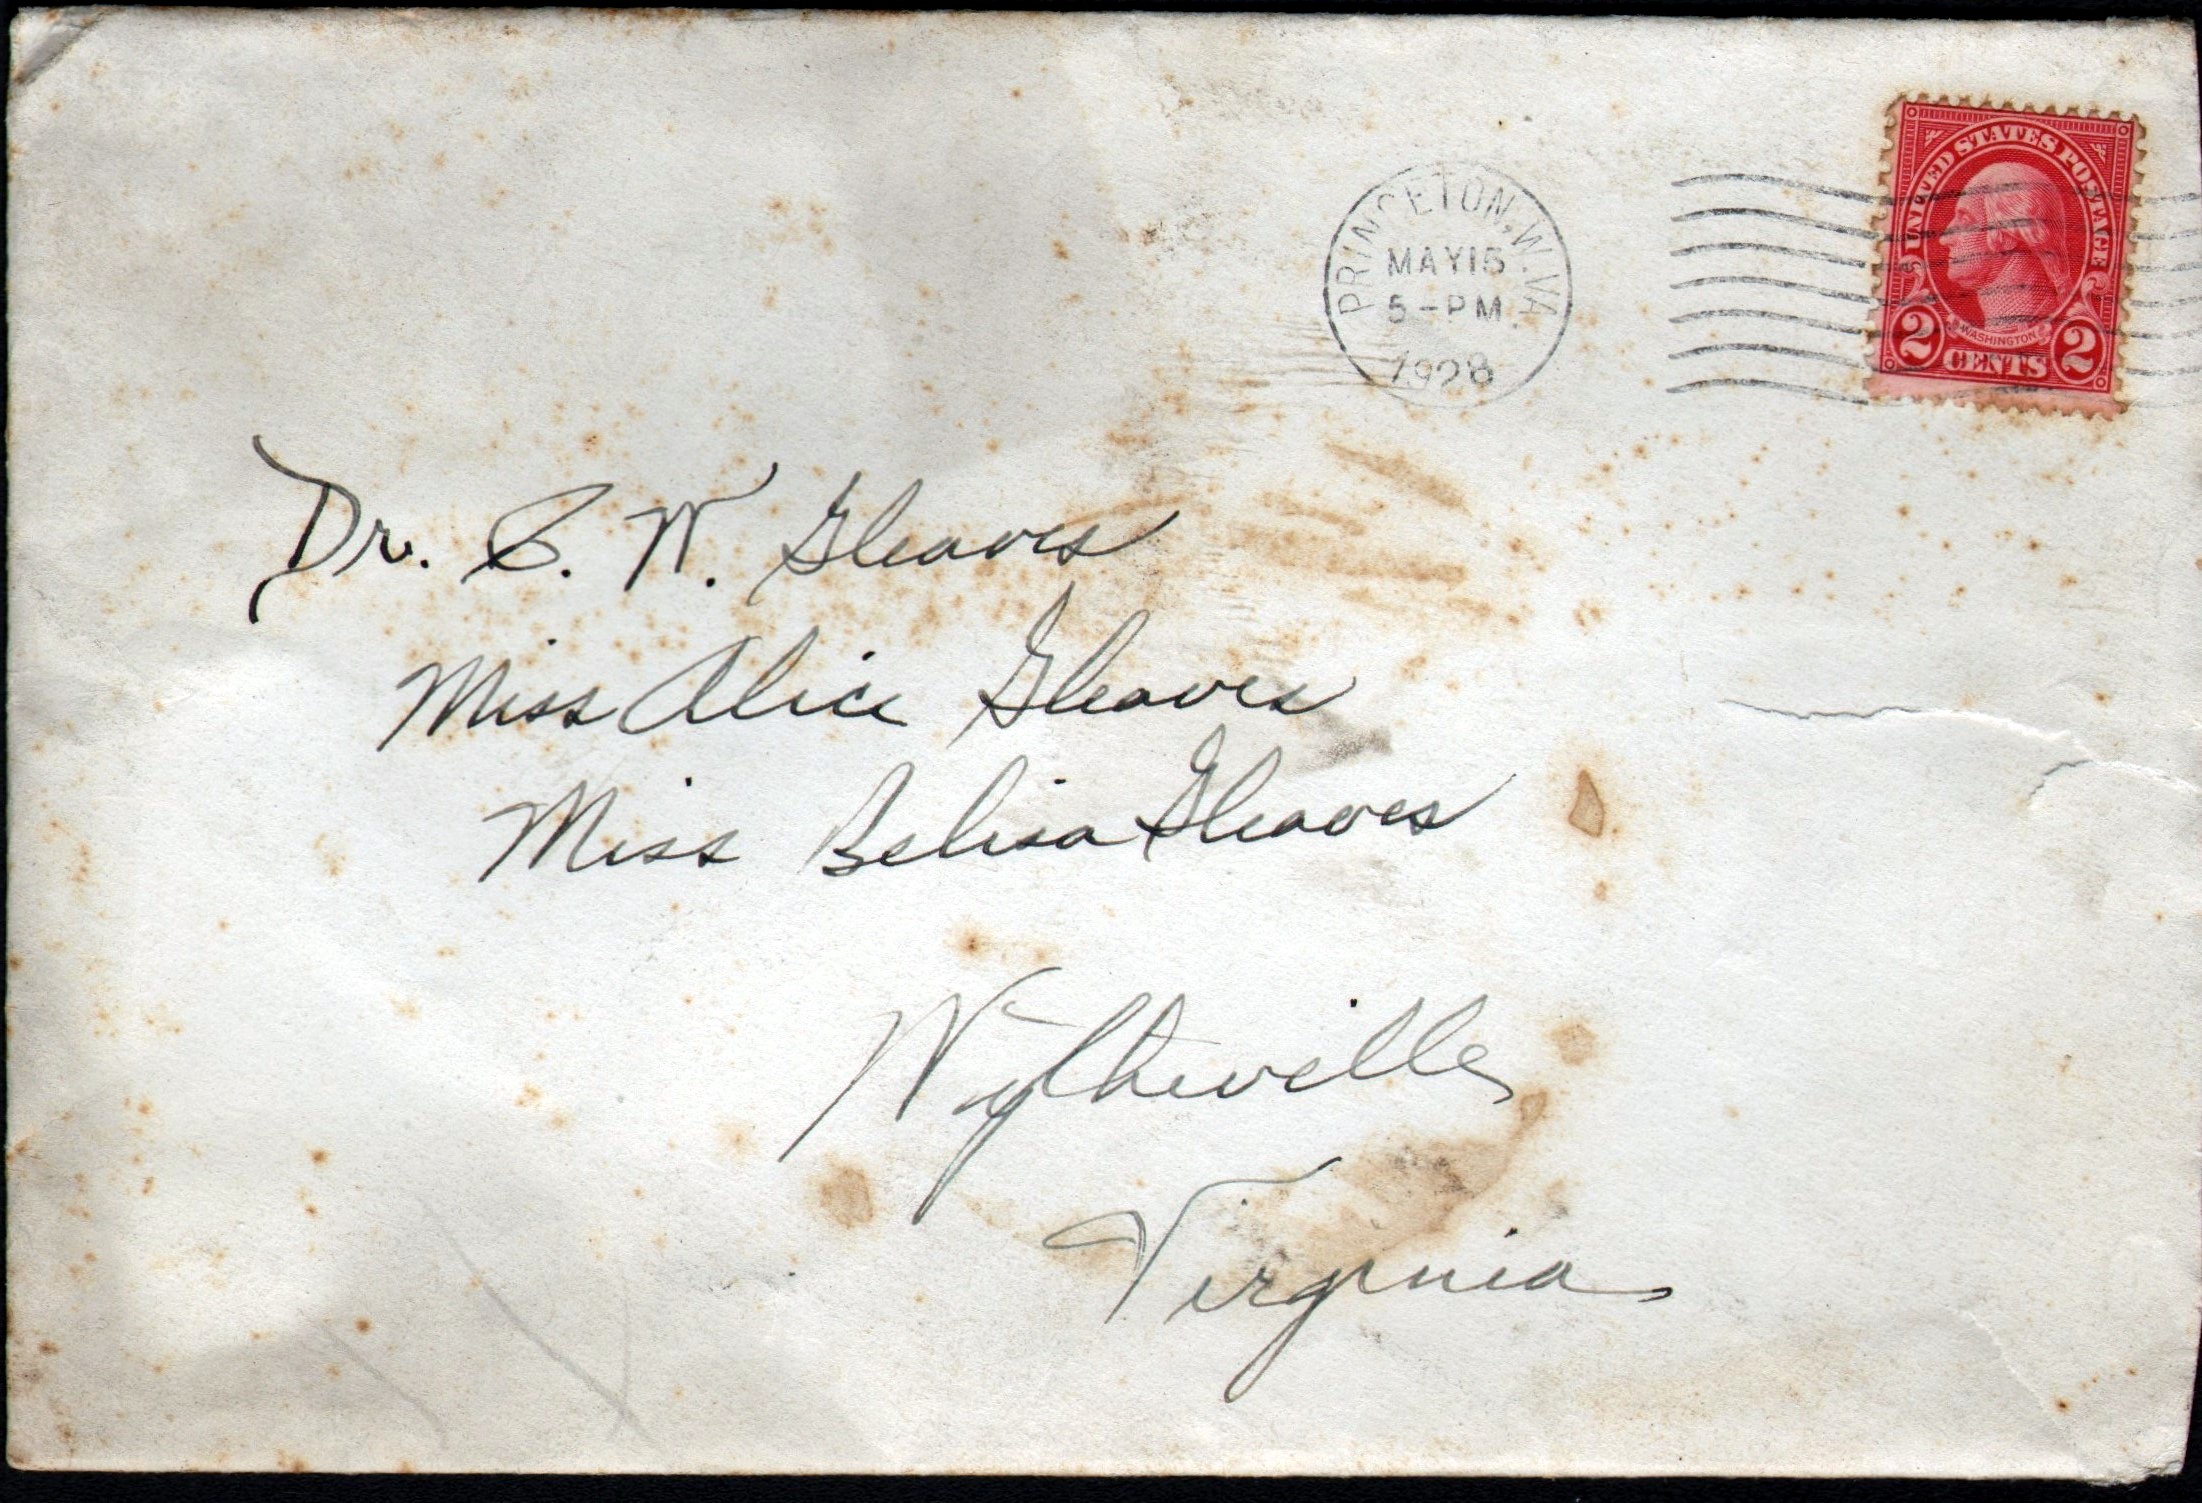 PRINCETON, W. VA.
MAY 15
5-PM
1928
UNITED STATES POSTAGE
WASHINGTON
2 CENTS 2
Dr. C. W. Gleaves
Miss Alice Gleaves
Miss Belisa Gleaves
Wytheville,
Virginia